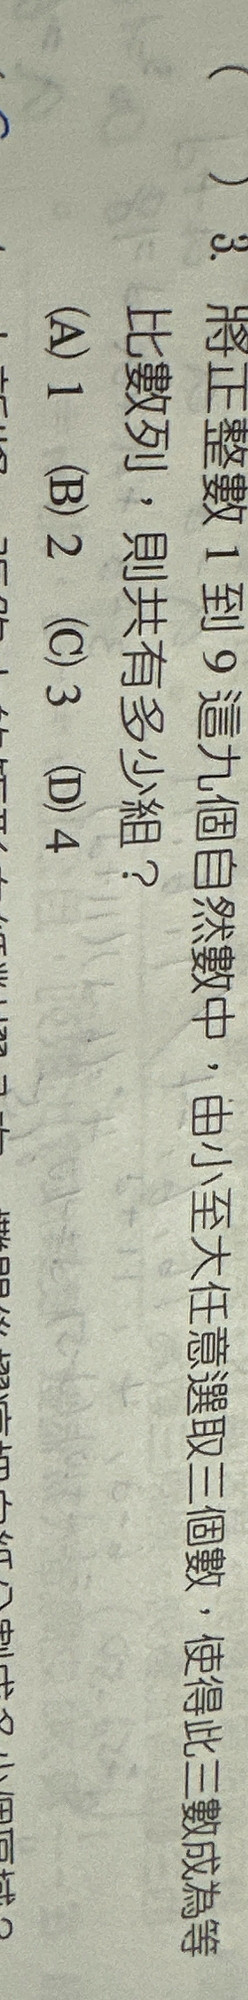 (　) 3. 將正整數 1 到 9 這九個自然數中，由小至大任意選取三個數，使得此三數成為等
比數列，則共有多少組？
(A) 1　(B) 2　(C) 3　(D) 4